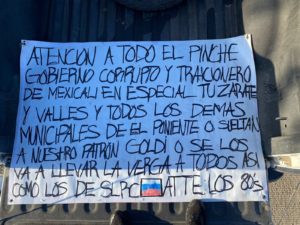 ATENCION A TODO EL PINCHE
GOBIERNO CORRUPTO Y TRAICIONERO
DE MEXICALI EN ESPECIAL TU ZARATE
Y VALLES Y TODOS LOS DEMAS
MUNICIPALES DE EL PONIENTE O SUELTAN
A NUESTRO PATRON GOLDI O SE LOS
VA A LLEVAR LA VERGA A TODOS ASI
COMO LOS DE SLRC ATTE LOS 80s